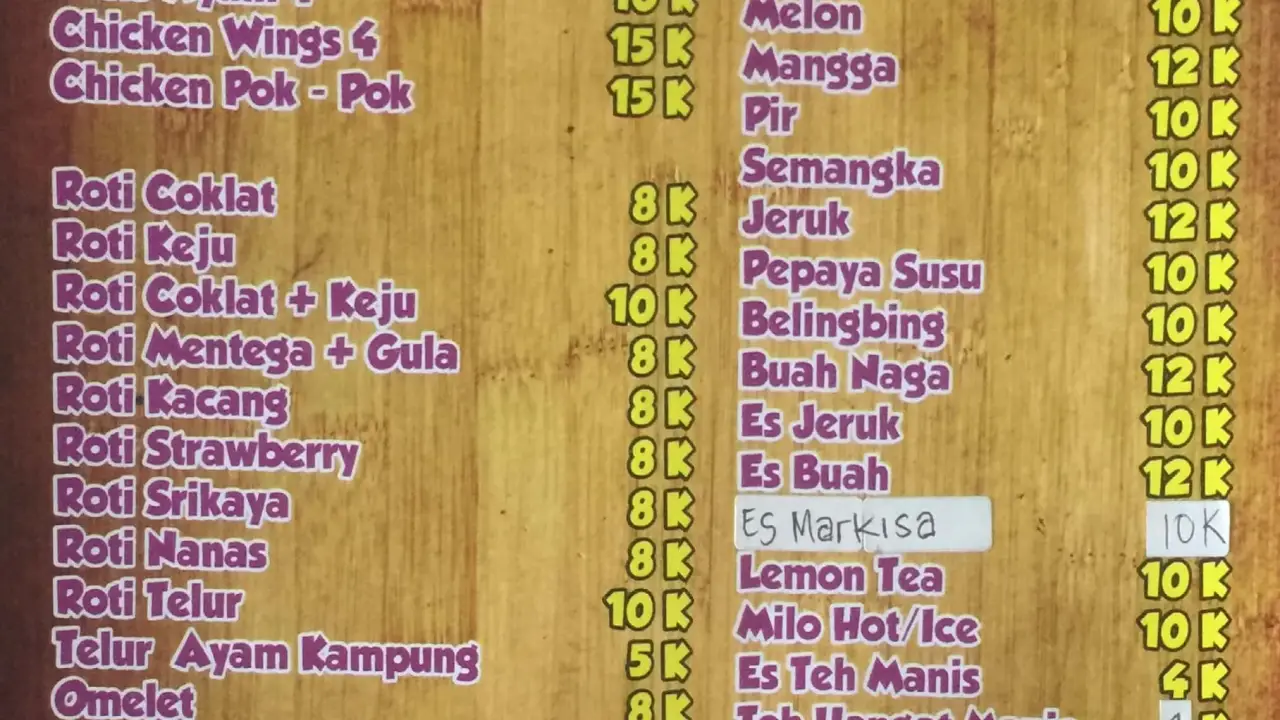 Chicken Wings 4 15 K
Chicken Pok - Pok 15 K
Roti Coklat 8 K
Roti Keju 8 K
Roti Coklat + Keju 10 K
Roti Mentega + Gula 8 K
Roti Kacang 8 K
Roti Strawberry 8 K
Roti Srikaya 8 K
Roti Nanas 8 K
Roti Telur 10 K
Telur Ayam Kampung 5 K
Omelet 8 K
Melon 10 K
Mangga 12 K
Pir 10 K
Semangka 10 K
Jeruk 12 K
Pepaya Susu 10 K
Belingbing 10 K
Buah Naga 12 K
Es Jeruk 10 K
Es Buah 12 K
Es Markisa 10 K
Lemon Tea 10 K
Milo Hot/Ice 10 K
Es Teh Manis 4 K